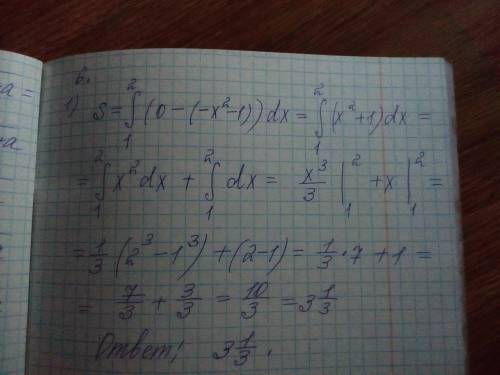 a =
+a
6.
1) S = ∫₁² (0 - (-x² - 1)) dx = ∫₁² (x² + 1) dx =
= ∫₁² x² dx + ∫₁² dx = x³/3 |₁² + x |₁² =
= 1/3 (2³ - 1³) + (2 - 1) = 1/3 · 7 + 1 =
= 7/3 + 3/3 = 10/3 = 3 1/3
Ответ: 3 1/3.